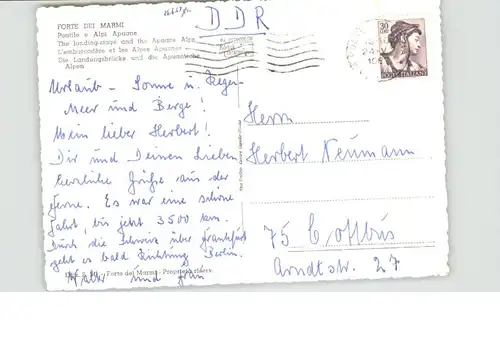 FORTE DEI MARMI
Pontile e Alpi Apuane
The landing-stage and the Apuane Alps
L'embarcadère et les Alpes Apuanes
Die Landungsbrücke und die Apuanische
Alpen
DDR
30
POSTE ITALIANE
Urlaub – Sonne u. Regen
Meer und Berge!
Mein lieber Herbert!
Dir und Deinen Lieben
herzliche Grüße aus der
Ferne. Es war eine schöne
Fahrt, bis jetzt 3500 km.
Durch die Schweiz über Frankfurt
geht es bald Richtung Berlin.
Walter und Frau
Forte dei Marmi - Proprietà riserv.
Herrn
Herbert Neumann
75 Cottbus
Arndtstr. 27